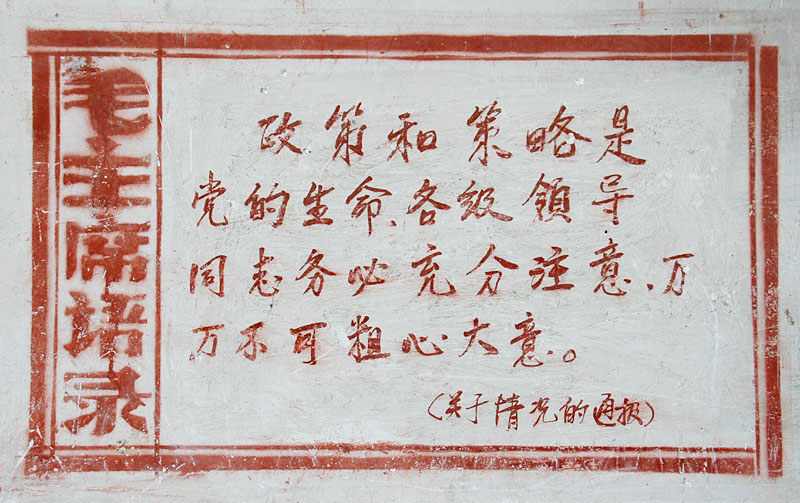 毛主席语录
政策和策略是
党的生命,各级領导
同志务必充分注意,万
万不可粗心大意。
(关于情况的通报)